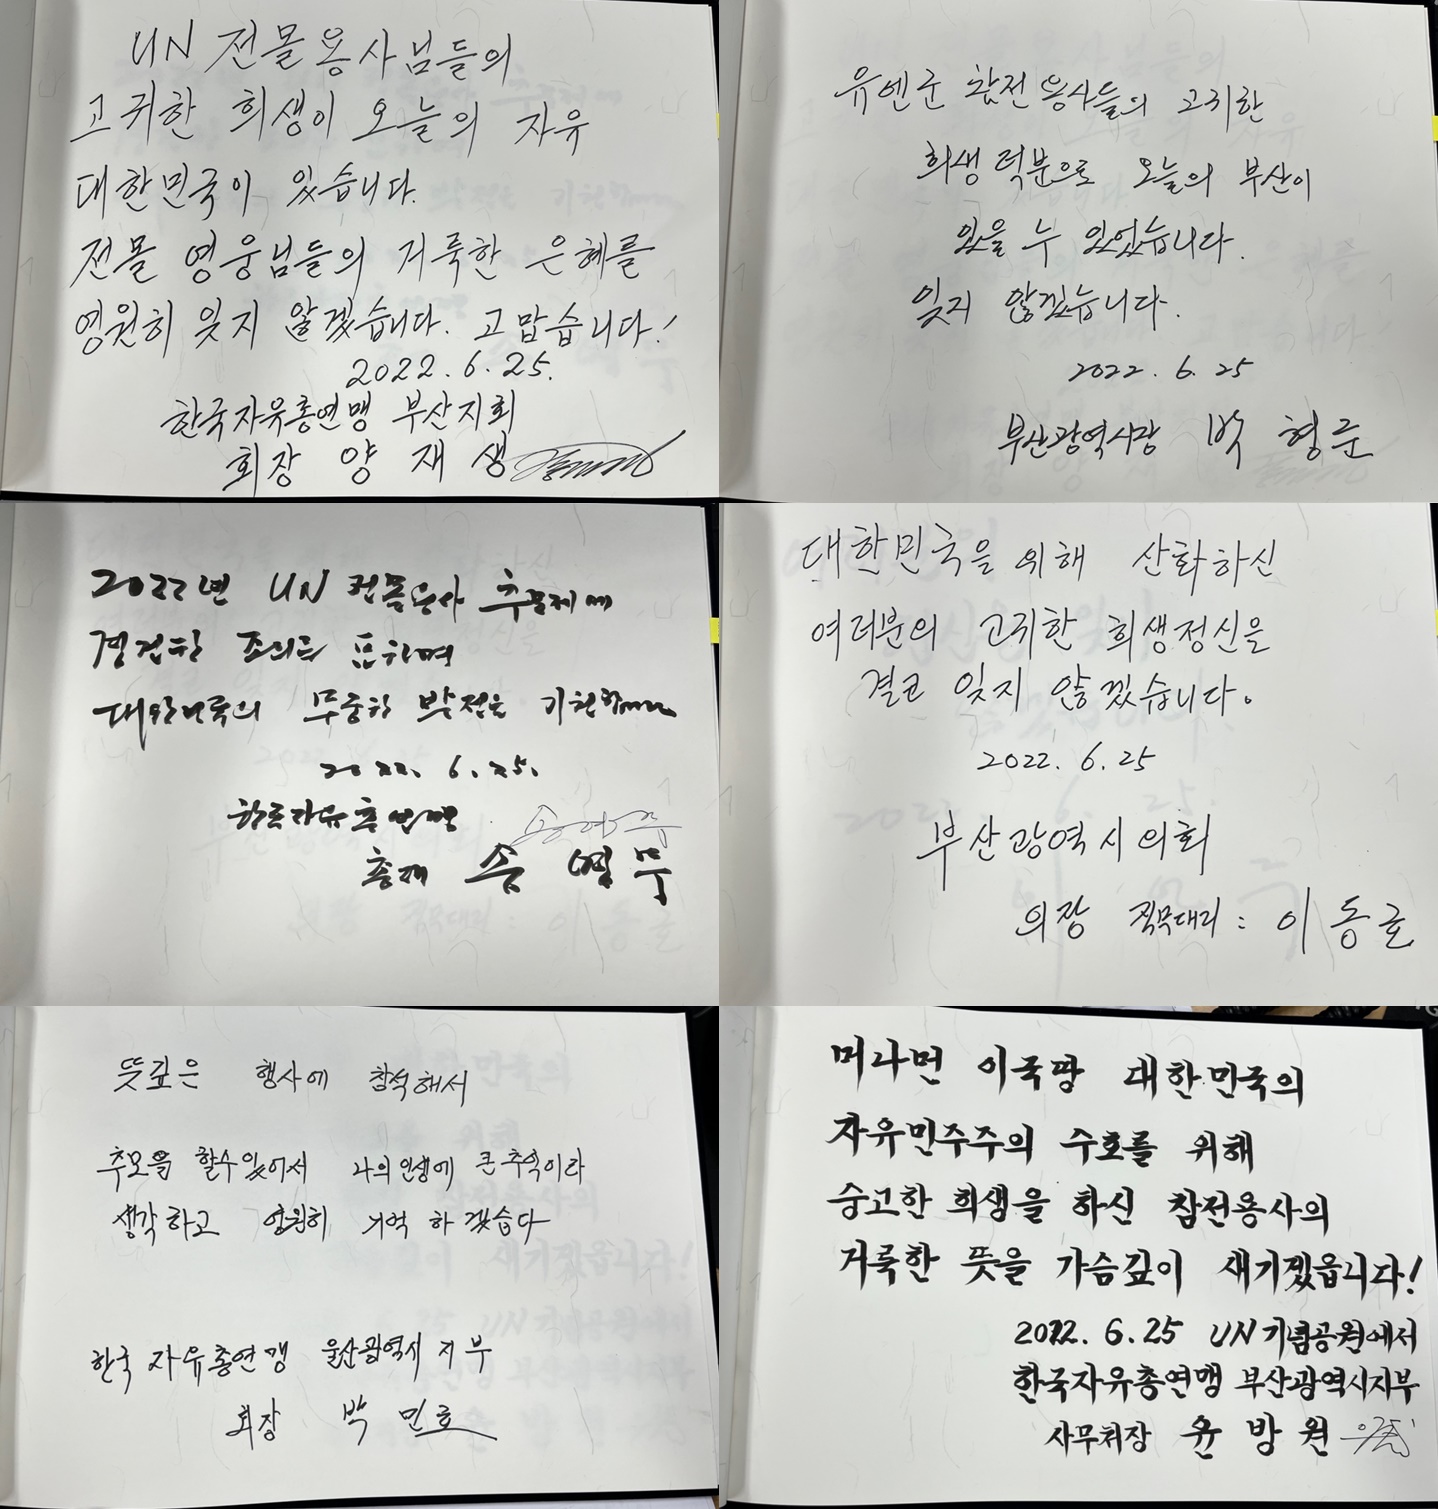 UN 전몰용사님들의
고귀한 희생이 오늘의 자유
대한민국이 있습니다.
전몰 영웅님들의 거룩한 은혜를
영원히 잊지 않겠습니다. 고맙습니다!
2022.6.25.
한국자유총연맹 부산지회
회장 양재생
유엔군 참전용사들의 고귀한
희생 덕분으로 오늘의 부산이
있을 수 있었습니다.
잊지 않겠습니다.
2022. 6. 25
부산광역시장 박형준
2022년 UN 전몰용사 추모제에
경건한 조의를 표하며
대한민국의 무궁한 발전을
2022. 6. 25.
한국자유총연맹
총재 송영무
대한민국을 위해 산화하신
여러분의 고귀한 희생정신을
결코 잊지 않겠습니다.
2022. 6. 25
부산광역시의회
의장 직무대리 : 이동호
뜻깊은 행사에 참석해서
추모을 할수있어서 나의 인생에 큰 추억이라
생각하고 영원히 기억 하겠습다
한국자유총연맹 울산광역시지부
회장 박민호
머나먼 이국땅 대한민국의
자유민주주의 수호를 위해
숭고한 희생을 하신 참전용사의
거룩한 뜻을 가슴깊이 새기겠읍니다!
2022.6.25 UN기념공원에서
한국자유총연맹 부산광역시지부
사무처장 윤방원